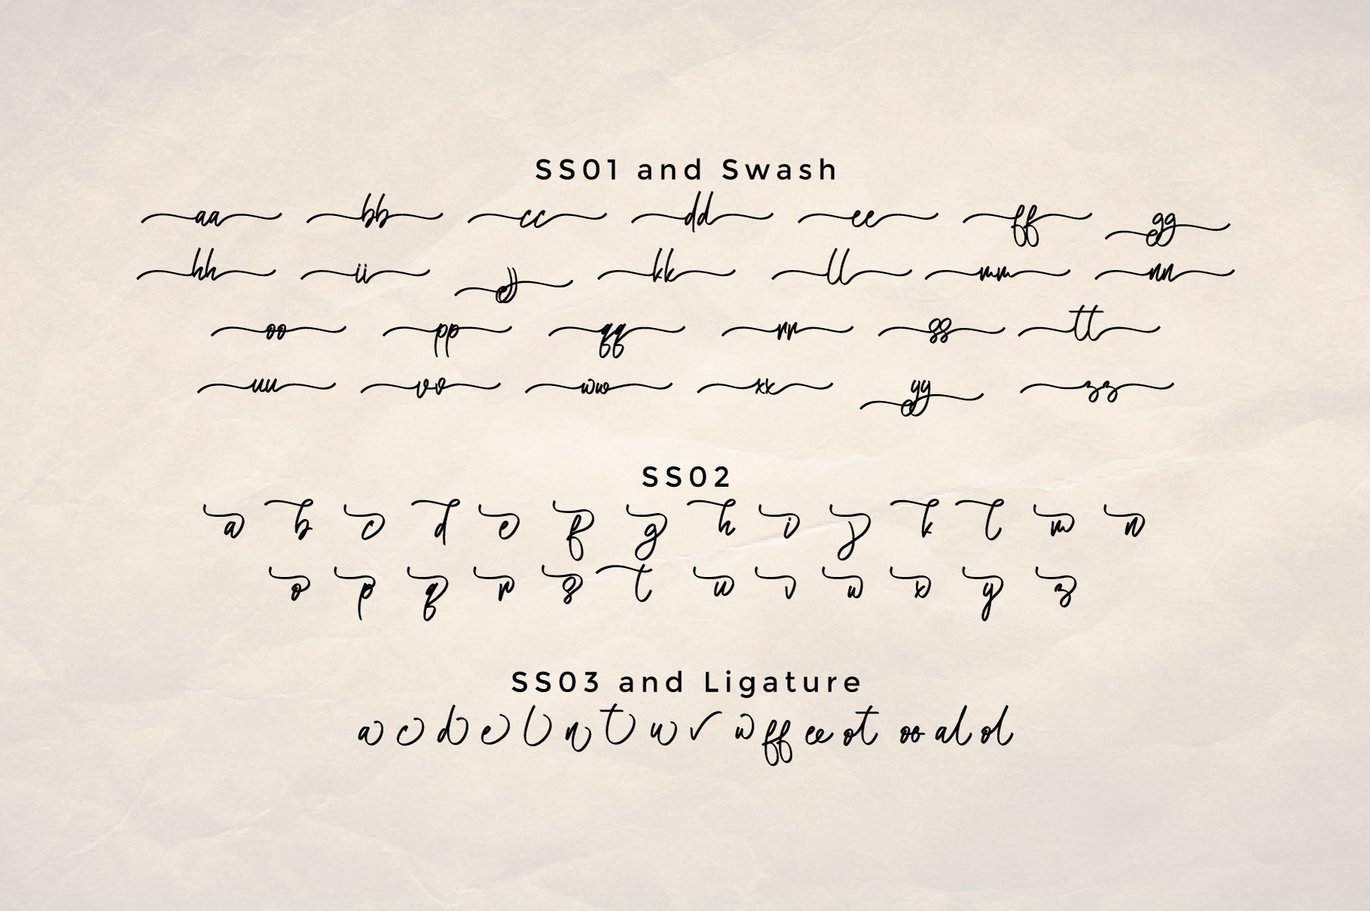 SS01 and Swash
aa bb cc dd ee ff gg
hh ii jj kk ll mm nn
oo pp qq rr ss tt
uu vv ww xx yy zz
SS02
a b c d e f g h i j k l m n
o p q r s t u v w x y z
SS03 and Ligature
a c d e l n t u r w ff ee ot os al ol